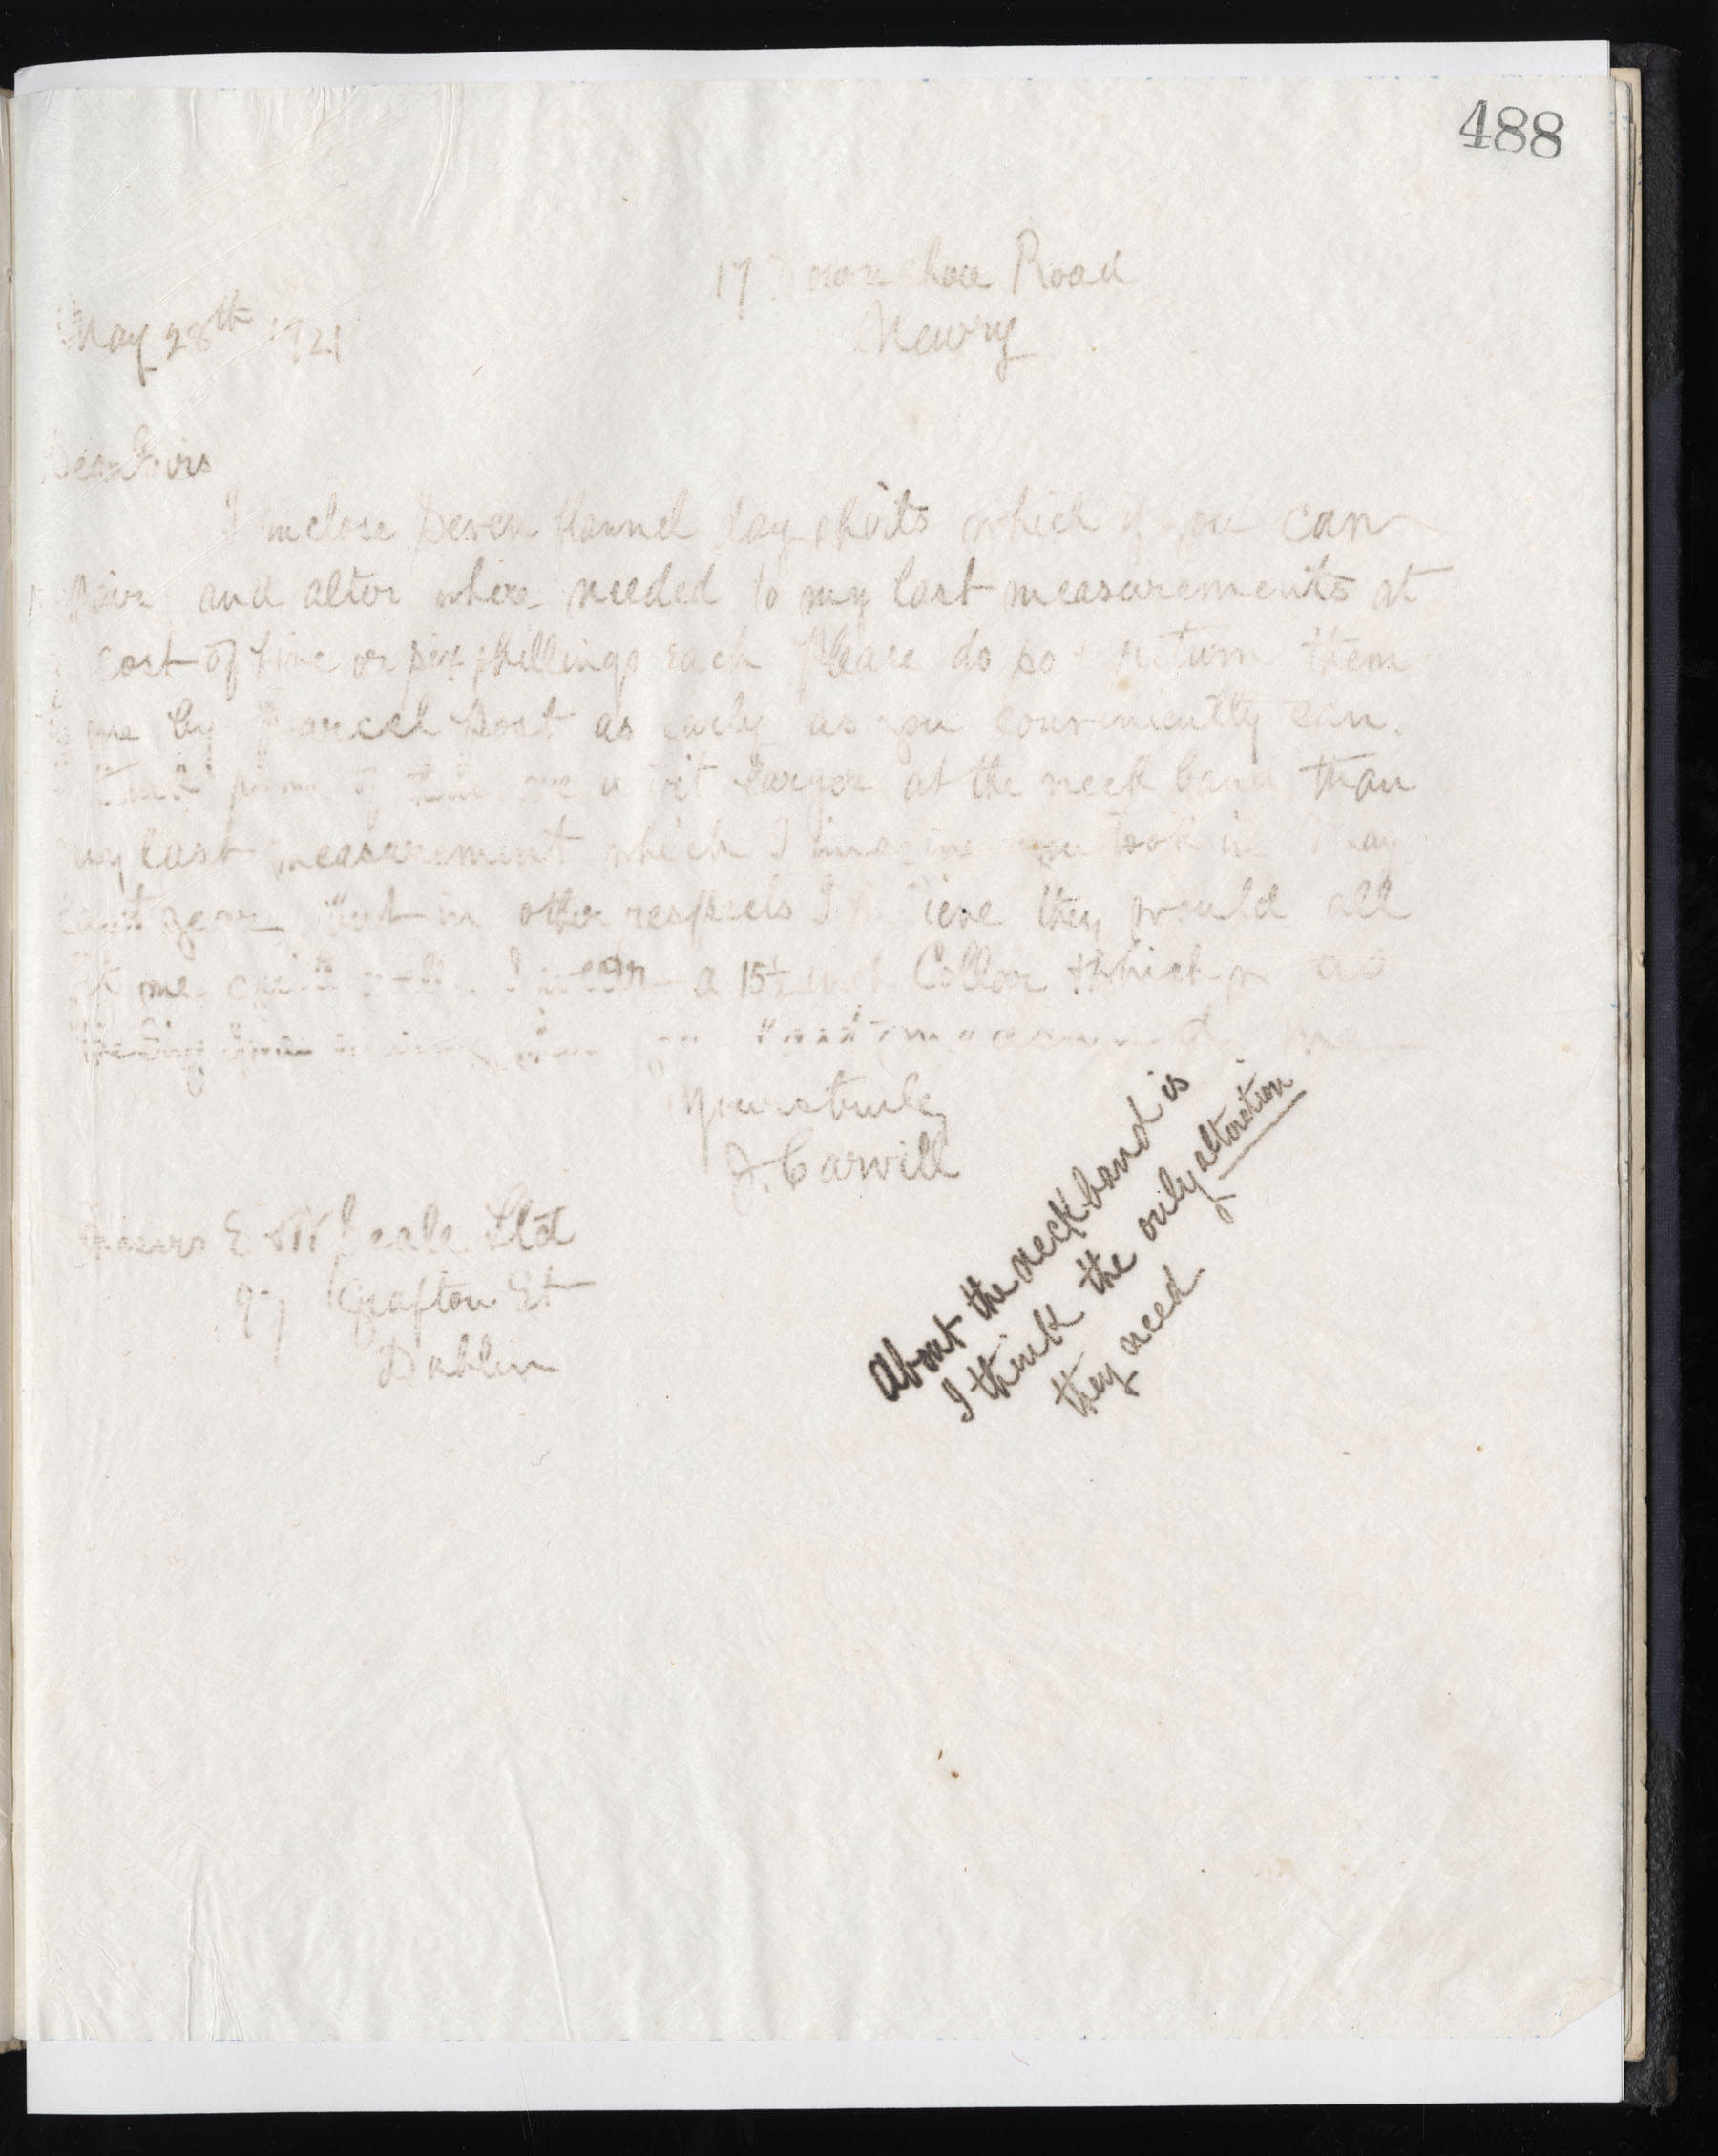 488
17 Downshire Road
Newry
May 28th 1921
Dear Sirs
I inclose seven flannel day shirts which if you can
repair and alter where needed to my last measurements at
cost of five or six shillings each Please do so & return them
me by parcel post as early as you conveniently can.
I think some of them are a bit larger at the neck band than
my last measurement which I imagine you took in May
last year but in other respects I believe they would all
fit me quite well. I wear a 15½ inch Collar which as
measured me
Yours truly
J. Carwill
Messrs E & W Seale Ltd
Grafton St
Dublin
About the neckband is
I think the only alteration
they need